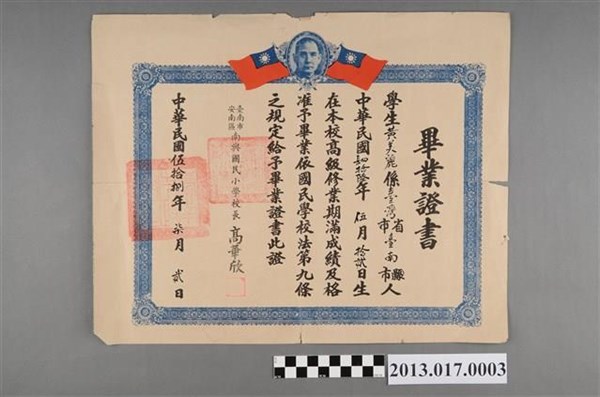 畢業證書
學生黃美麗係臺灣省市臺南縣市人
中華民國肆拾陸年伍月拾貳日生
在本校高級修業期滿成績及格
准予畢業依國民學校法第九條
之規定給予畢業證書此證
臺南市安南區南興國民小學校長 高華欣
中華民國伍拾捌年 柒月 貳日
2013.017.0003